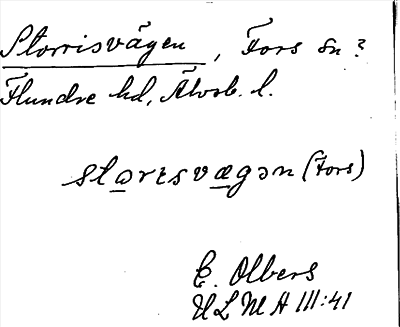 Storrisvägen, Fors sn?
Flundre hd, Älvsb. l.
storisvægən (Fors)
E. Olbers
ULMA 111:41